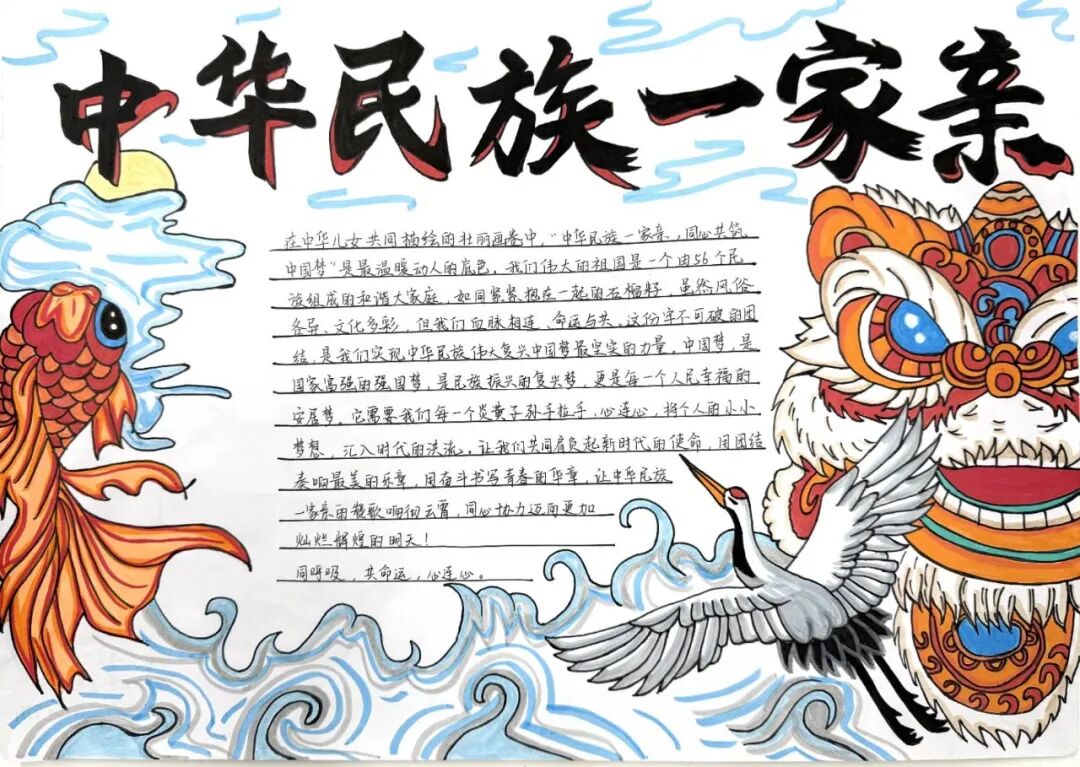 中华民族一家亲
在中华儿女共同描绘的壮丽画卷中，“中华民族一家亲，同心共筑
中国梦”是最温暖动人的底色。我们伟大的祖国是一个由56个民
族组成的和谐大家庭，如同紧紧抱在一起的石榴籽，虽然风俗
各异、文化多彩，但我们血脉相连、命运与共。这份牢不可破的团
结，是我们实现中华民族伟大复兴中国梦最坚实的力量。中国梦，是
国家富强的强国梦，是民族振兴的复兴梦，更是每一个人民幸福的
安居梦。它需要我们每一个炎黄子孙手拉手、心连心，将个人的小小
梦想，汇入时代的洪流。让我们共同肩负起新时代的使命，用团结
奏响最美的乐章，用奋斗书写青春的华章，让中华民族
一家亲的赞歌响彻云霄，同心协力迈向更加
灿烂辉煌的明天！
同呼吸，共命运，心连心。